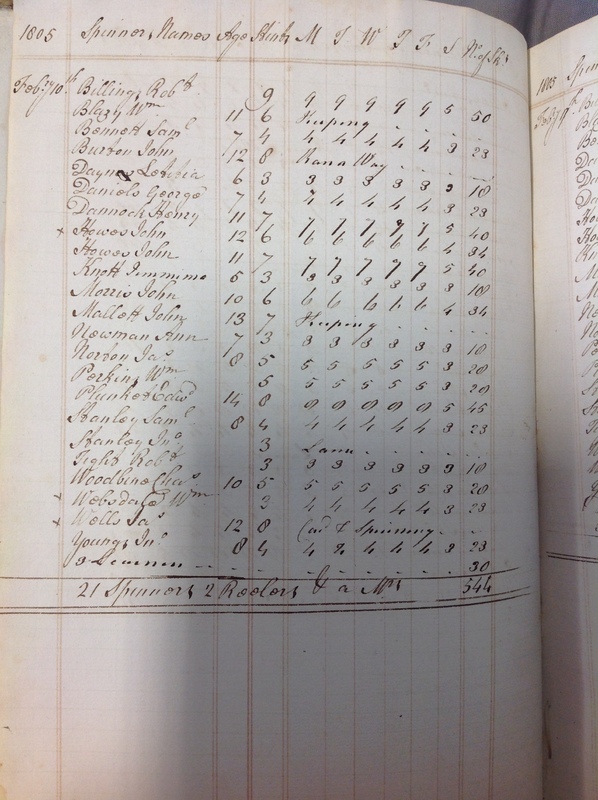 1805 Spinners Names Age Stint M T W T F S No. of Sks
Feby 10th Billings Robt 9 9 9 9 9 9 5 50
Blazy Wm 11 6 Keeping . . . .
Bennett Saml 7 4 4 4 4 4 4 3 23
Burton John 12 8 Rann Way . . . .
Daynes Letitia 6 3 3 3 3 3 3 3 18
Daniels George 7 4 4 4 4 4 4 3 23
Dannock Henry 11 7 7 7 7 7 7 5 40
x Howes John 12 6 6 6 6 6 6 4 34
Howes John 11 7 7 7 7 7 7 5 40
Knott Jemmima 6 3 3 3 3 3 3 3 18
Morris John 10 6 6 6 6 6 6 4 34
Mallett John 13 7 Keeping . . . .
Newman Ann 7 3 3 3 3 3 3 3 18
Norton Jas 8 5 5 5 5 5 5 3 28
Perkins Wm 5 5 5 5 5 5 3 28
Plunket Edwd 14 8 8 8 8 8 8 5 45
Stanley Saml 8 4 4 4 4 4 4 3 23
Stanley Jno 3 Lame . . . .
Tight Robt 3 3 3 3 3 3 3 18
Woodbine Chas 10 5 5 5 5 5 5 3 28
x Websdale Wm 3 4 4 4 4 4 3 23
x Wells Jas 12 8 Card & Spinning . . .
Youngs Jno 8 4 4 4 4 4 4 3 23
3 Learners . . . . . . . . 30
21 Spinners 2 Reelers & a Mrs 544
1805